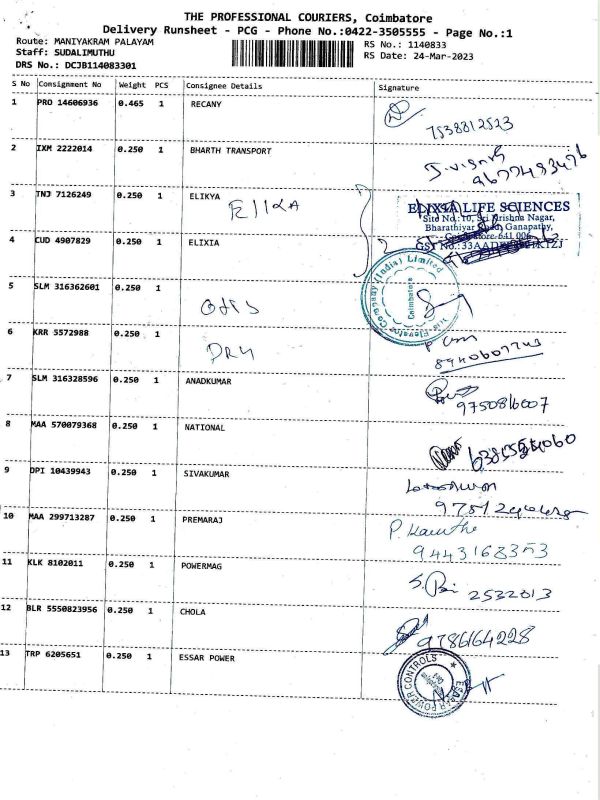 THE PROFESSIONAL COURIERS, Coimbatore
Delivery Runsheet - PCG - Phone No.:0422-3505555 - Page No.:1
Route: MANIYAKRAM PALAYAM
Staff: SUDALIMUTHU
DRS No.: DCJB114083301
RS No.: 1140833
RS Date: 24-Mar-2023
S No Consignment No Weight PCS Consignee Details Signature
1 PRO 14606936 0.465 1 RECANY
7538812523
2 IXM 2222014 0.250 1 BHARTH TRANSPORT
9677483476
3 TNJ 7126249 0.250 1 ELIKYA
ELIXIA LIFE SCIENCES
Site No.:10, Sri Krishna Nagar,
Bharathiyar Road, Ganapathy,
641 006
GST No.:33AAD
4 CUD 4907829 0.250 1 ELIXIA
5 SLM 316362601 0.250 1
Otis
Elevator Company (India) Limited
Coimbatore
6 KRR 5572988 1
8940607743
7 SLM 316328596 0.250 1 ANADKUMAR
9750816007
8 MAA 570079368 0.250 1 NATIONAL
9 DPI 10439943 0.250 1 SIVAKUMAR
10 MAA 299713287 0.250 1 PREMARAJ
9443168353
11 KLK 8102011 0.250 1 POWERMAG
2532013
12 BLR 5550823956 0.250 1 CHOLA
9786164228
13 TRP 6205651 0.250 1 ESSAR POWER
ESSAR POWER CONTROLS